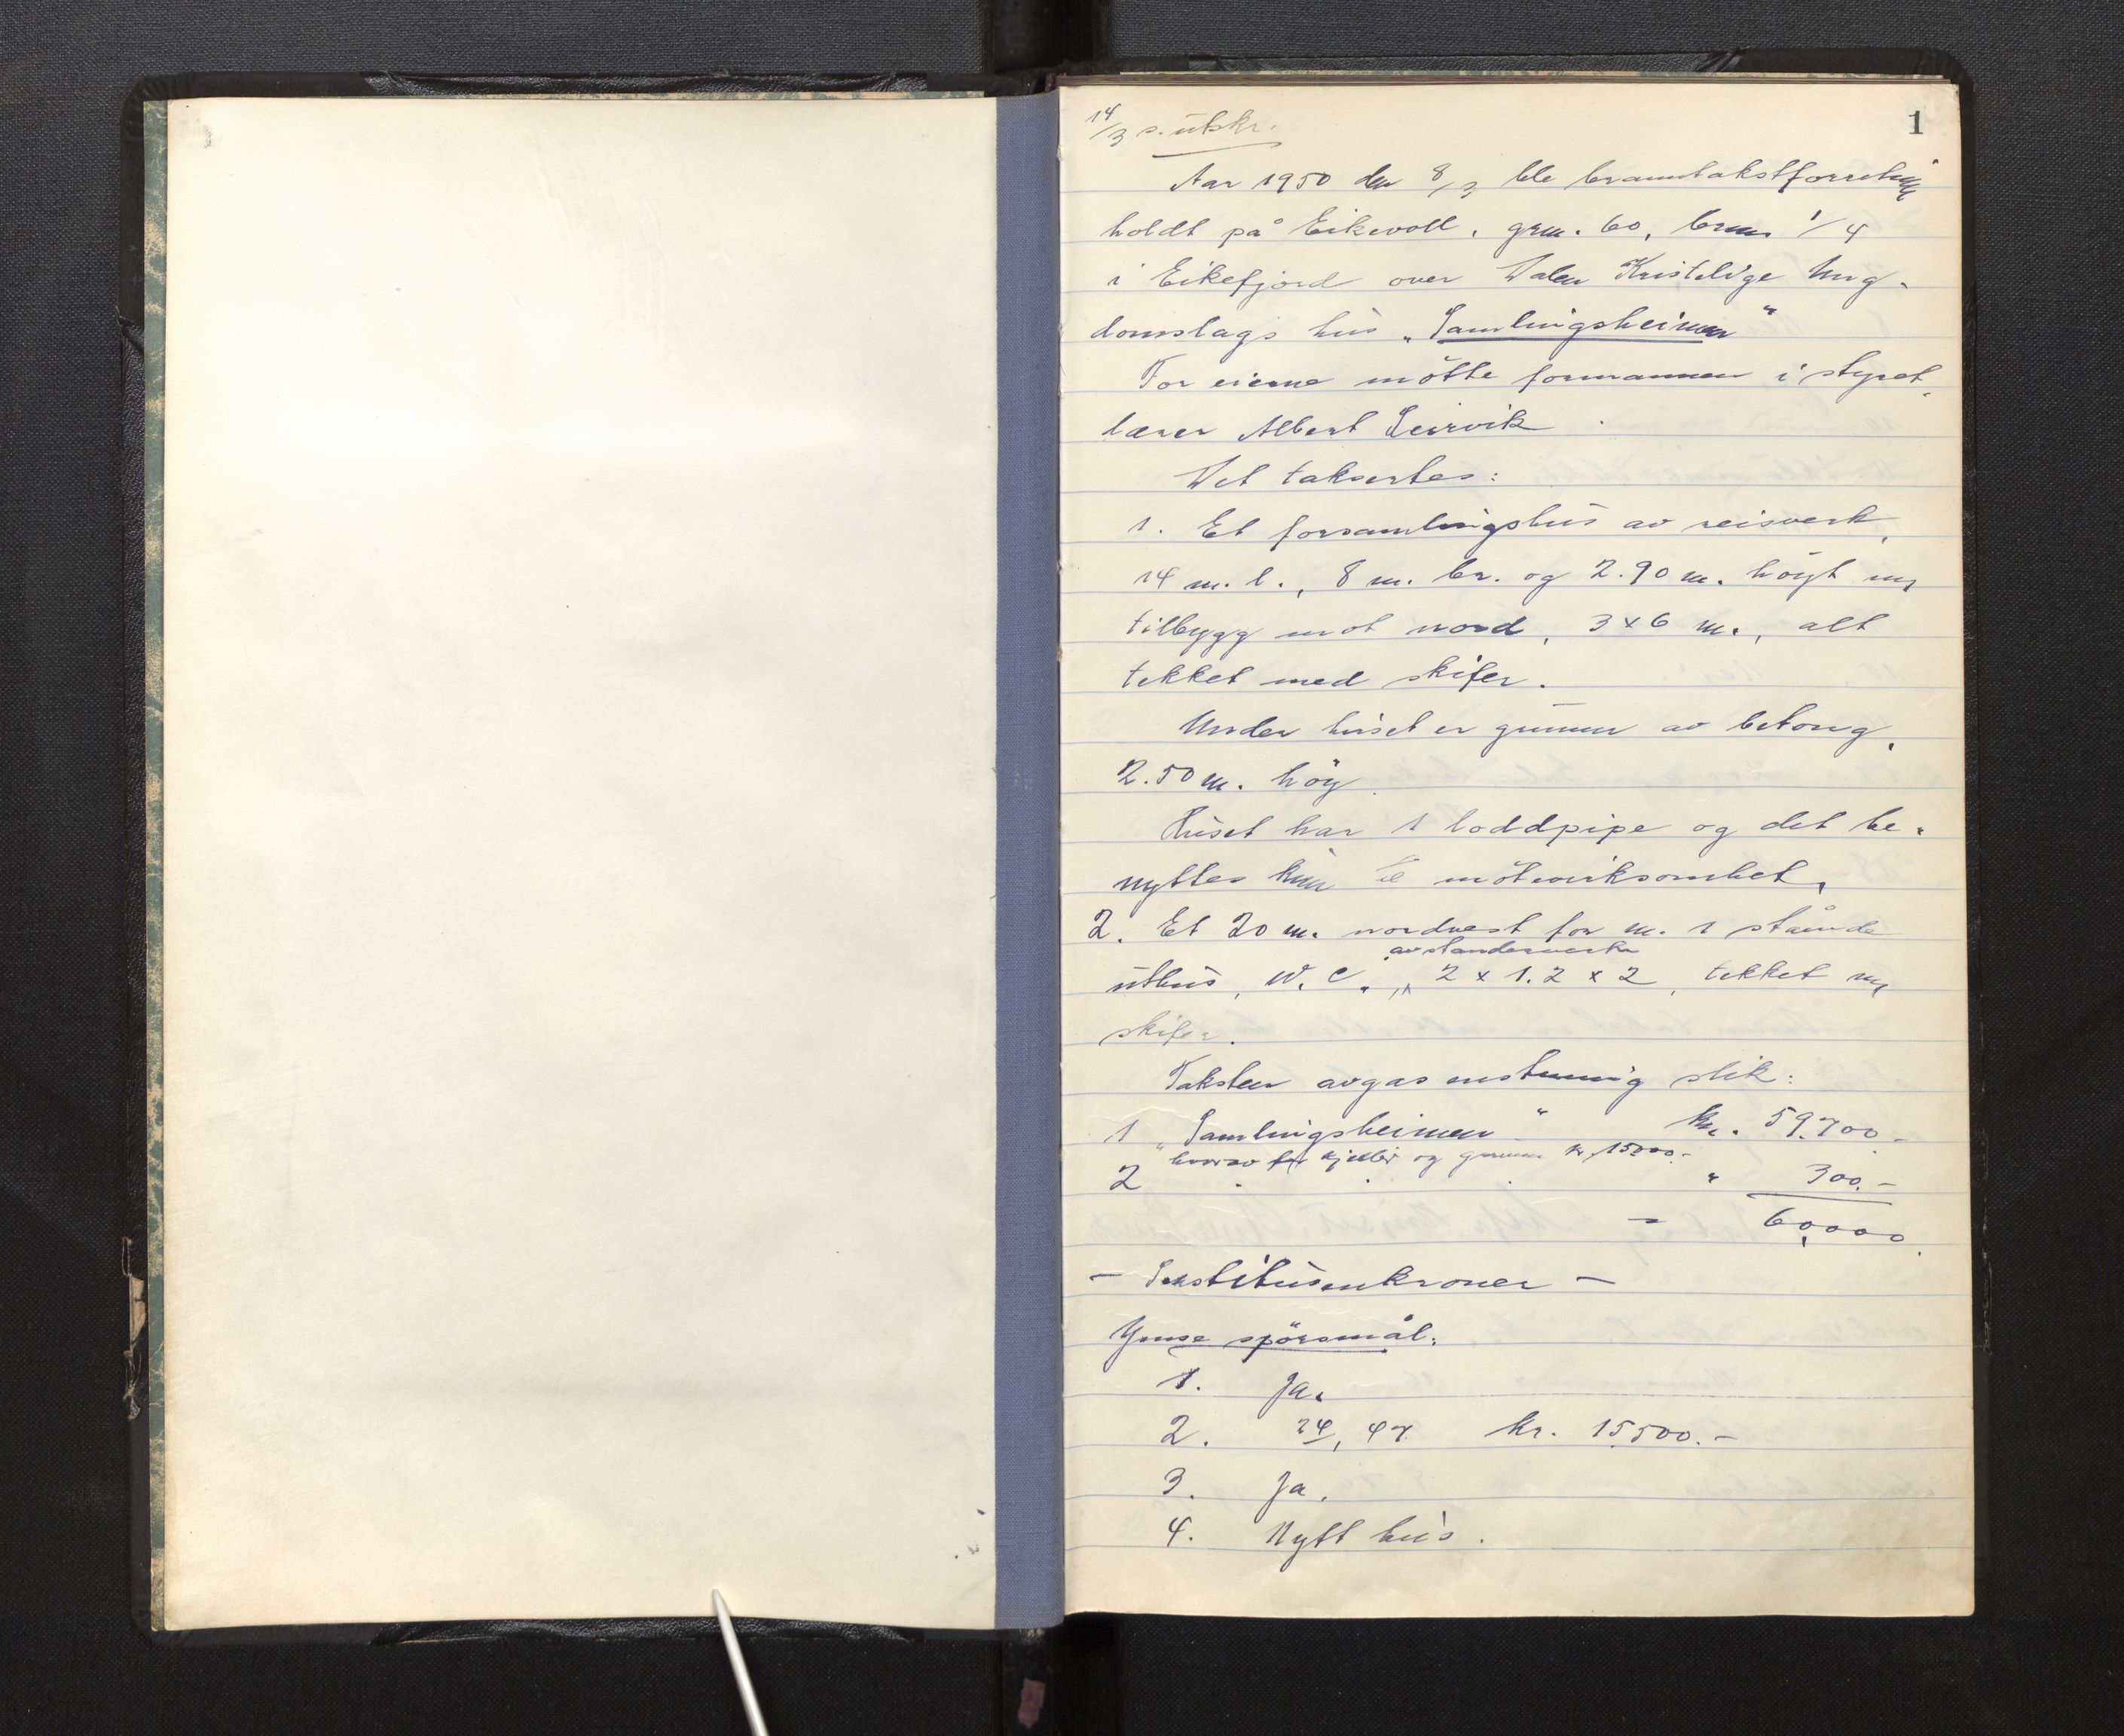 1
14/3 s. utskr.
Aar 1950 den 8/3 ble branntakstforretning
holdt på Eikevoll, grn. 60, brn. 1/4
i Eikefjord over Dalen Kristelige Ung-
domslags hus „Samlingsheimen“
For eierne møtte formannen i styret,
lærer Albert Leirvik.
Det taksertes:
1. Et forsamlingshus av reisverk,
14 m. l., 8 m. br. og 2.90 m. høyt m/
tilbygg mot nord, 3 x 6 m., alt
tekket med skifer.
Under huset er grunnmur av betong,
2.50 m. høy.
Huset har 1 loddpipe og det be-
nyttes kun til møtevirksomhet.
2. Et 20 m. nordvest for nr. 1 stående
av standerverk
uthus, W.C., 2 x 1.2 x 2, tekket m/
skifer.
Taksten avgas enstemmig slik:
1 „Samlingsheimen“ kr. 59.700.-
hvorav for kjeller og grunnmur kr. 15000.-
2 . . . " 300.-
= 60,000.
- Sekstitusenkroner -
Ymse spørsmål:
1. Ja.
2. 24/, 47 kr. 15500.-
3. Ja.
4. Nytt hus.